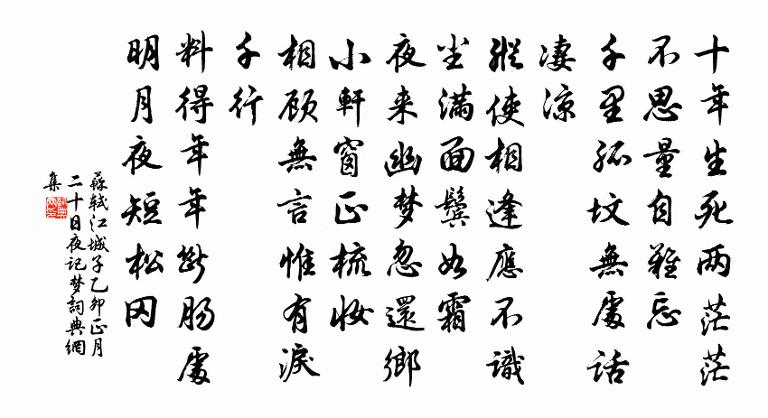 十年生死两茫茫
不思量自難忘
千里孤坟無處話
凄涼
縱使相逢應不識
尘满面鬓如霜
夜来幽梦忽還鄉
小軒窗正梳妝
相顾無言惟有淚
千行
料得年年断肠處
明月夜短松冈
蘇軾江城子乙卯正月
二十日夜记梦詞典網
集